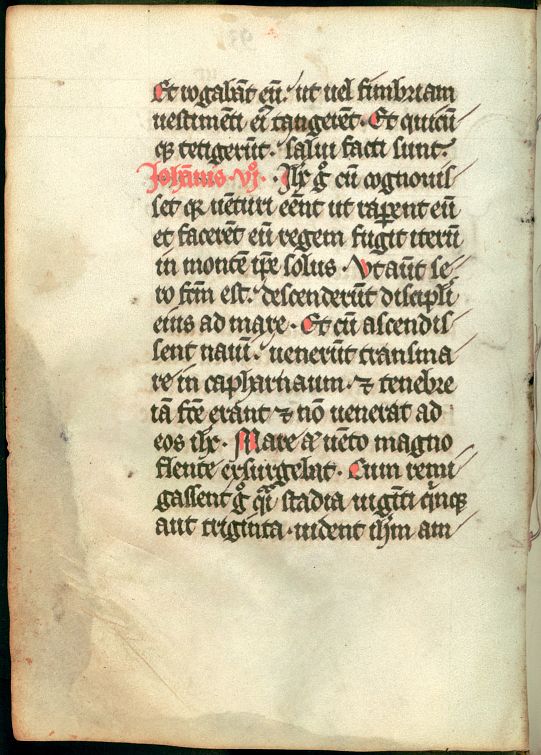 Et rogabāt eū. ut uel fimbriam
uestimēti eiꝰ tangerēt. Et quicū
qꝫ tetigerūt. salui facti sunt.
Iohānis. vjͦ. Ihc̄ gͦ cū cognouis
set qꝛ uēturi eēnt ut raꝑent eū
et facerēt eū regem fugit iterū
in montē ip̄e solus. Vt aūt se
ro fcm̄ est. descenderūt discipli
eius ad mare. Et cū ascendis
sent nauī. uenerūt transma
re in capharnaum. ⁊ tenebre
iā fcē erant ⁊ nō uenerat ad
eos ihc̄. Mare aͭ uēto magno
flente exsurgebat. Cum remi
gassent gͦ qͣi stadia uigīti qinqꝫ
aut triginta. uident ihm̄ am